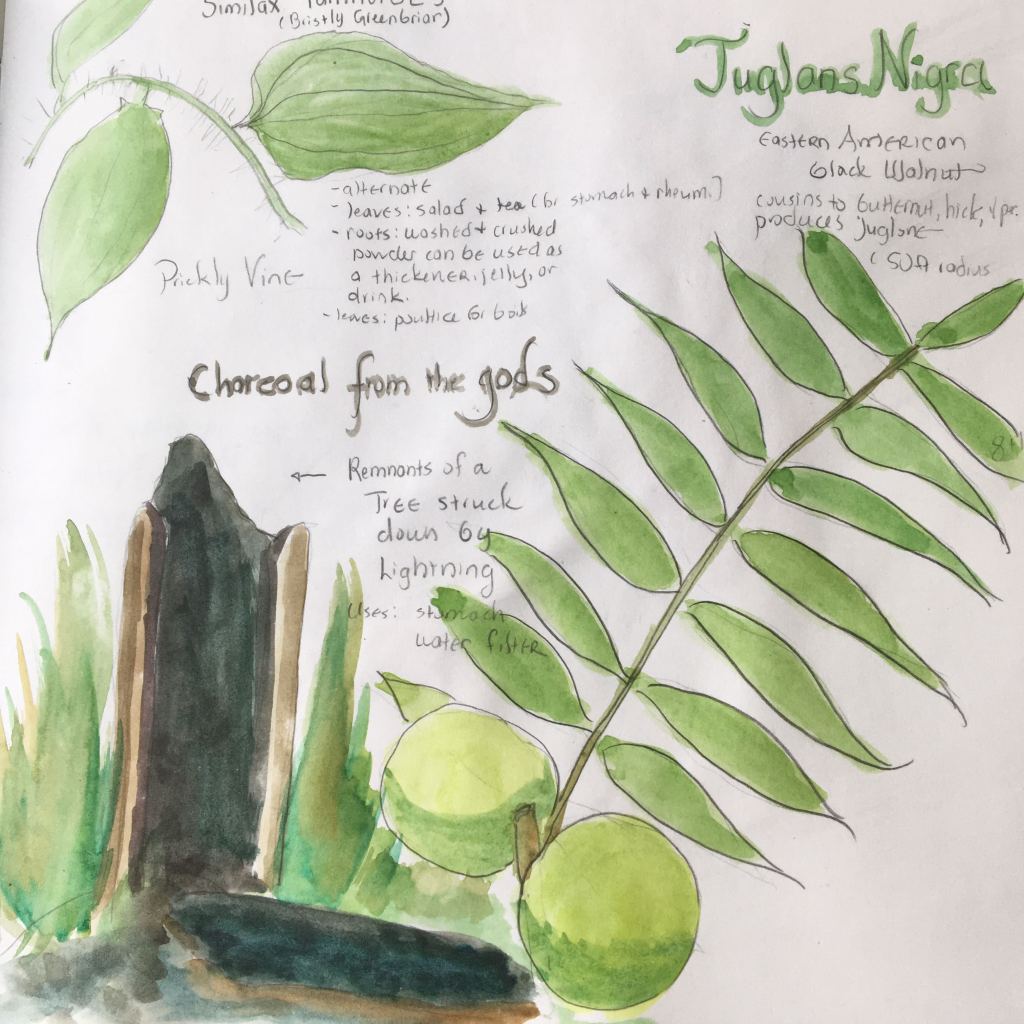 Smilax
(Bristly Greenbriar)
- alternate
- leaves: salad + tea (for stomach + rheum.)
- roots: washed + crushed
powder can be used as
a thickener, jelly, or
drink.
- leaves: poultice for boils
Prickly Vine
Juglans Nigra
Eastern American
Black Walnut
cousins to butternut, hick,
produces juglone
(50ft radius
8"
Charcoal from the gods
← Remnants of a
Tree struck
down by
Lightning
Uses: stomach
water filter